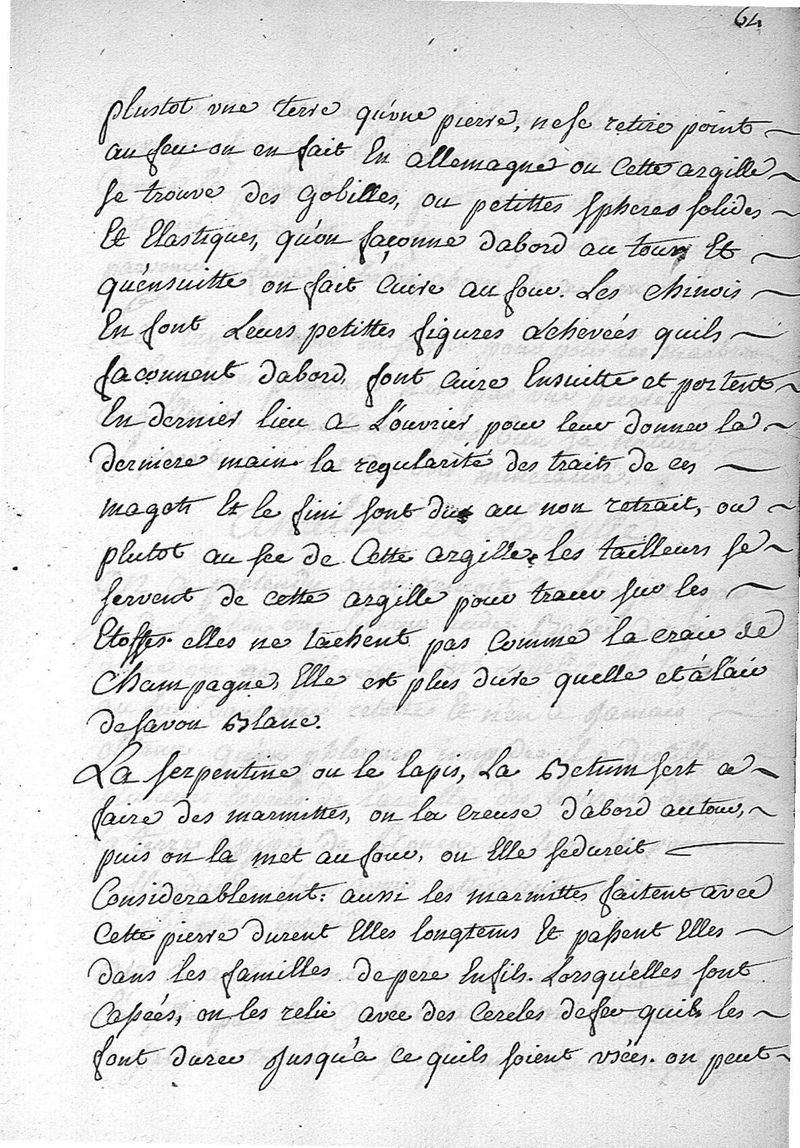 64
plustot une terre qu'une pierre, ne se retire point
au feu. on en fait En allemagne ou Cette argille
se trouve des Gobilles, ou petittes spheres solides
Et Elastiques, qu'on façonne d'abord au tour Et
qu'ensuitte on fait Cuire au four. Les chinois
En font Leurs petittes figures achevées quils
façonnent d'abord, font Cuire Ensuitte et portent
En dernier lieu a L'ouvrier pour leur donner la
derniere main. la regularité des traits de ces
magots Et le fini sont du au non retrait, ou
plutot au sec de Cette argille. les tailleurs se
servent de cette argille pour tracer sur les
Etoffes. elles ne tachent pas Comme la craie de
Champagne, Elle est plus dure quelle et à l'air
de savon Blanc.
La serpentine ou le lapis, La Betum sert a
faire des marmittes, on la Creuse d'abord au tour,
puis on la met au four, ou Elle se durcit
Considerablement: aussi les marmittes faitent avec
Cette pierre durent Elles longtems Et passent Elles
dans les familles de pere En fils. Lorsqu'elles sont
Cassées, on les relie avec des Cercles de fer quils les
font durer Jusqu'a ce quils soient usées. on peut